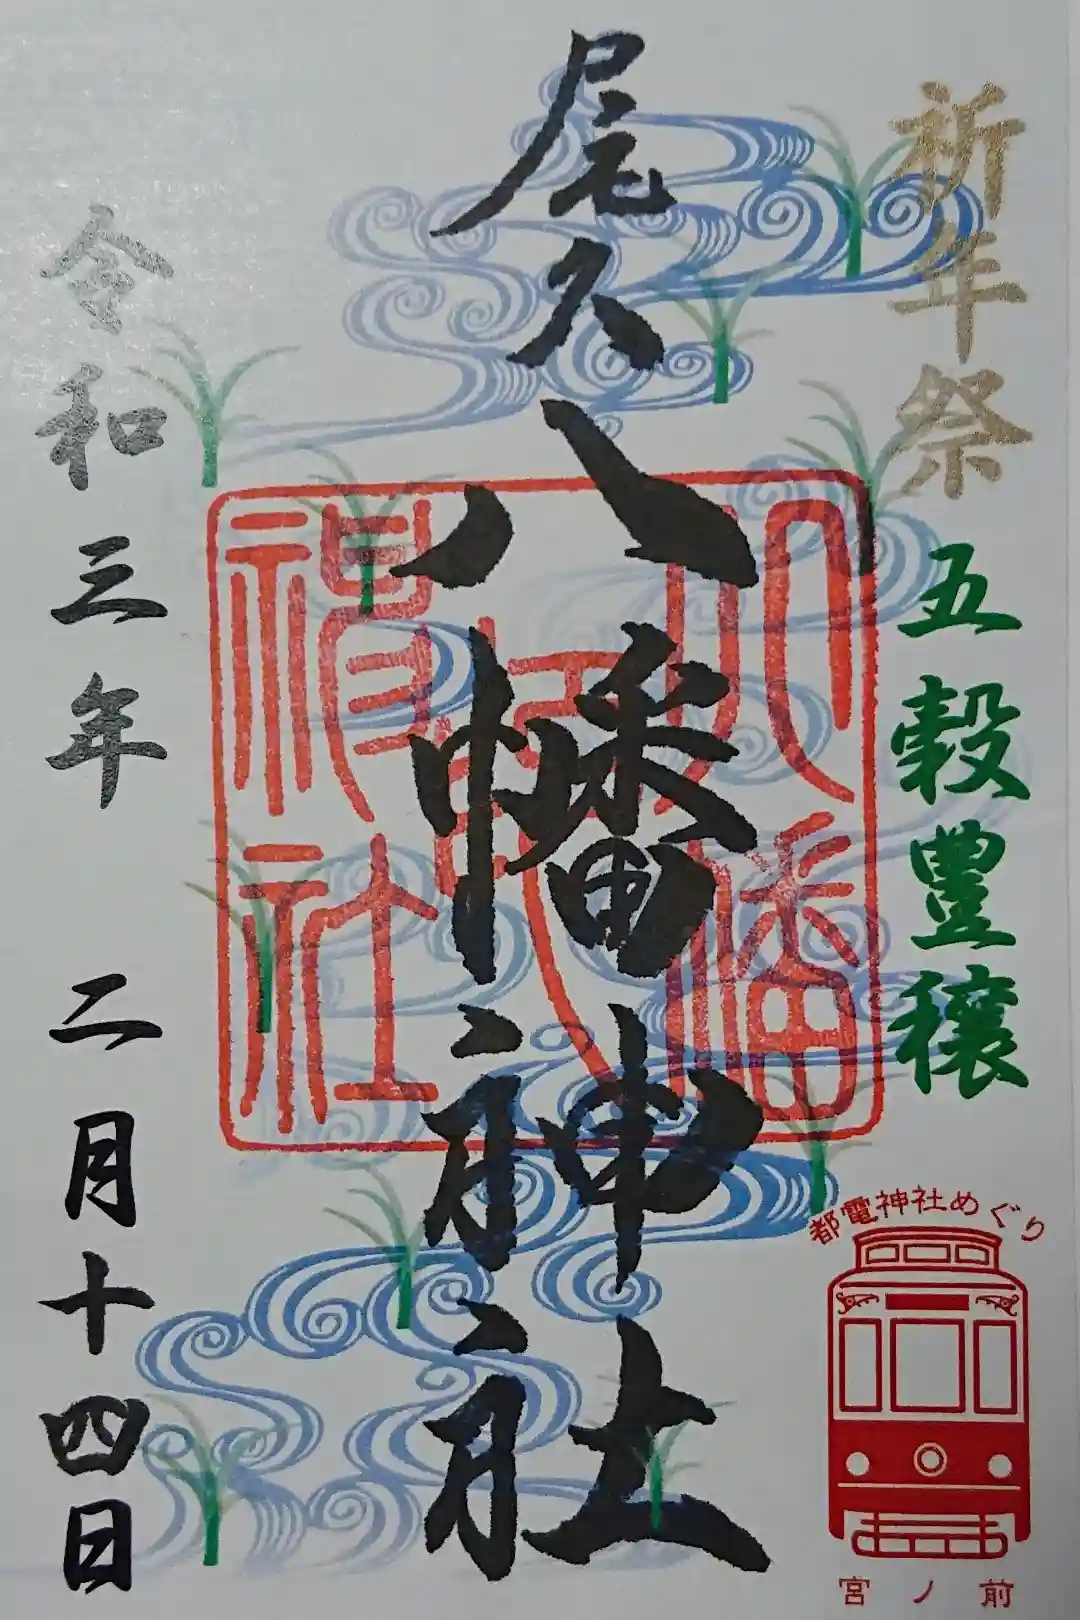 祈年祭
五穀豊穣
尾久八幡神社
八幡
神社
令和三年 二月十四日
都電神社めぐり
宮ノ前